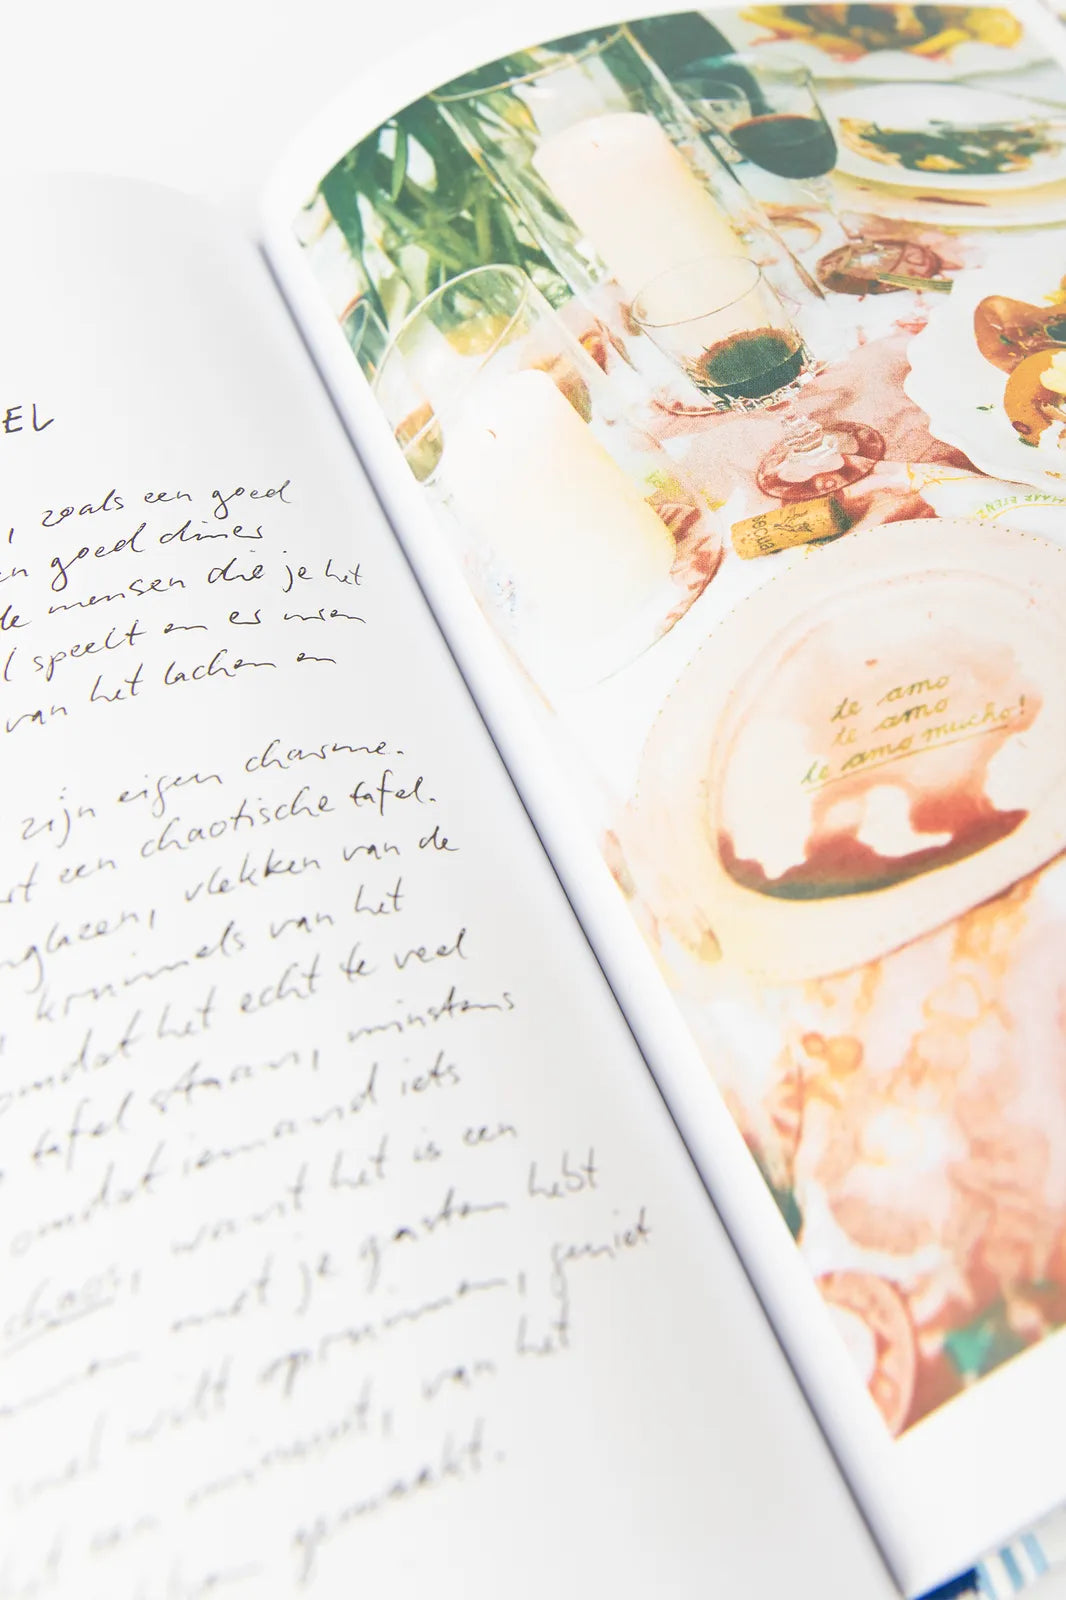 EL
, zoals een goed
en goed diner
de mensen die je het
l speelt en er wien
van het lachen en
zijn eigen charme.
rt een chaotische tafel.
nglazen, vlekken van de
, kruimels van het
omdat het echt te veel
tafel staan, minstens
omdat iemand iets
chaos, want het is een
met je gasten hebt
snel wilt opruimen, geniet
het een minuut, van het
hebben gemaakt.
te amo
te amo
te amo mucho!